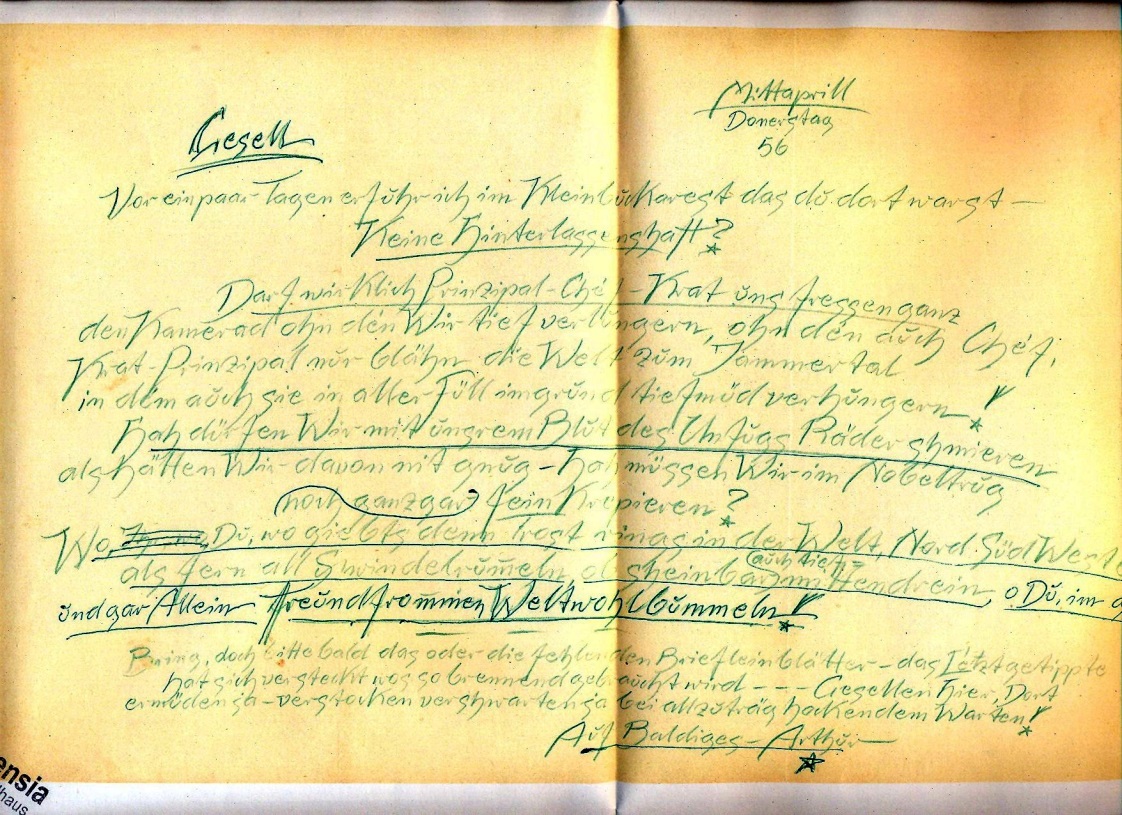 Mittaprill
Donerstag
56
Gesell
Vor ein paar Tagen erfuhr ich im Kleinbuckarest das du dort warst –
Keine Hinterlassenshaft?
Darf wirklich Prinzipal-Chéf-Krat uns fressen ganz
den Kamerad ohn dén Wir tief verlungern, ohn dén auch Chéf,
Krat-Prinzipal nur blähn die Welt zum Jammertal
in dém auch sie in aller Füll im grund tiefmüd verhungern!
Hah dürfen Wir mit unsrem Blut des Unfugs Räder shmieren
als hätten Wir davon nit gnug – Hah müssen Wir im Nobeltrug
noch ganz gar fein Krepieren?
Wo, Du, wo giebts denn Trost rings in der Welt, Nord Süd West
auch tief
als fern all Swindelrümeln, ob sheinbar mittendrein, o Du, im
und gar Allein Freundfrommen Weltwohlbummeln!
Bring, doch bitte bald das oder die fehlenden Briefleinblätter – das Letztgetippte
hat sich versteckt wos so brennend gebraucht wird – – – Gesellen hier, Dort
ermüden ja – verstocken vershwarten ja bei allzuträg hockendem Warten!
Auf Baldiges – Arthur
ensia
haus